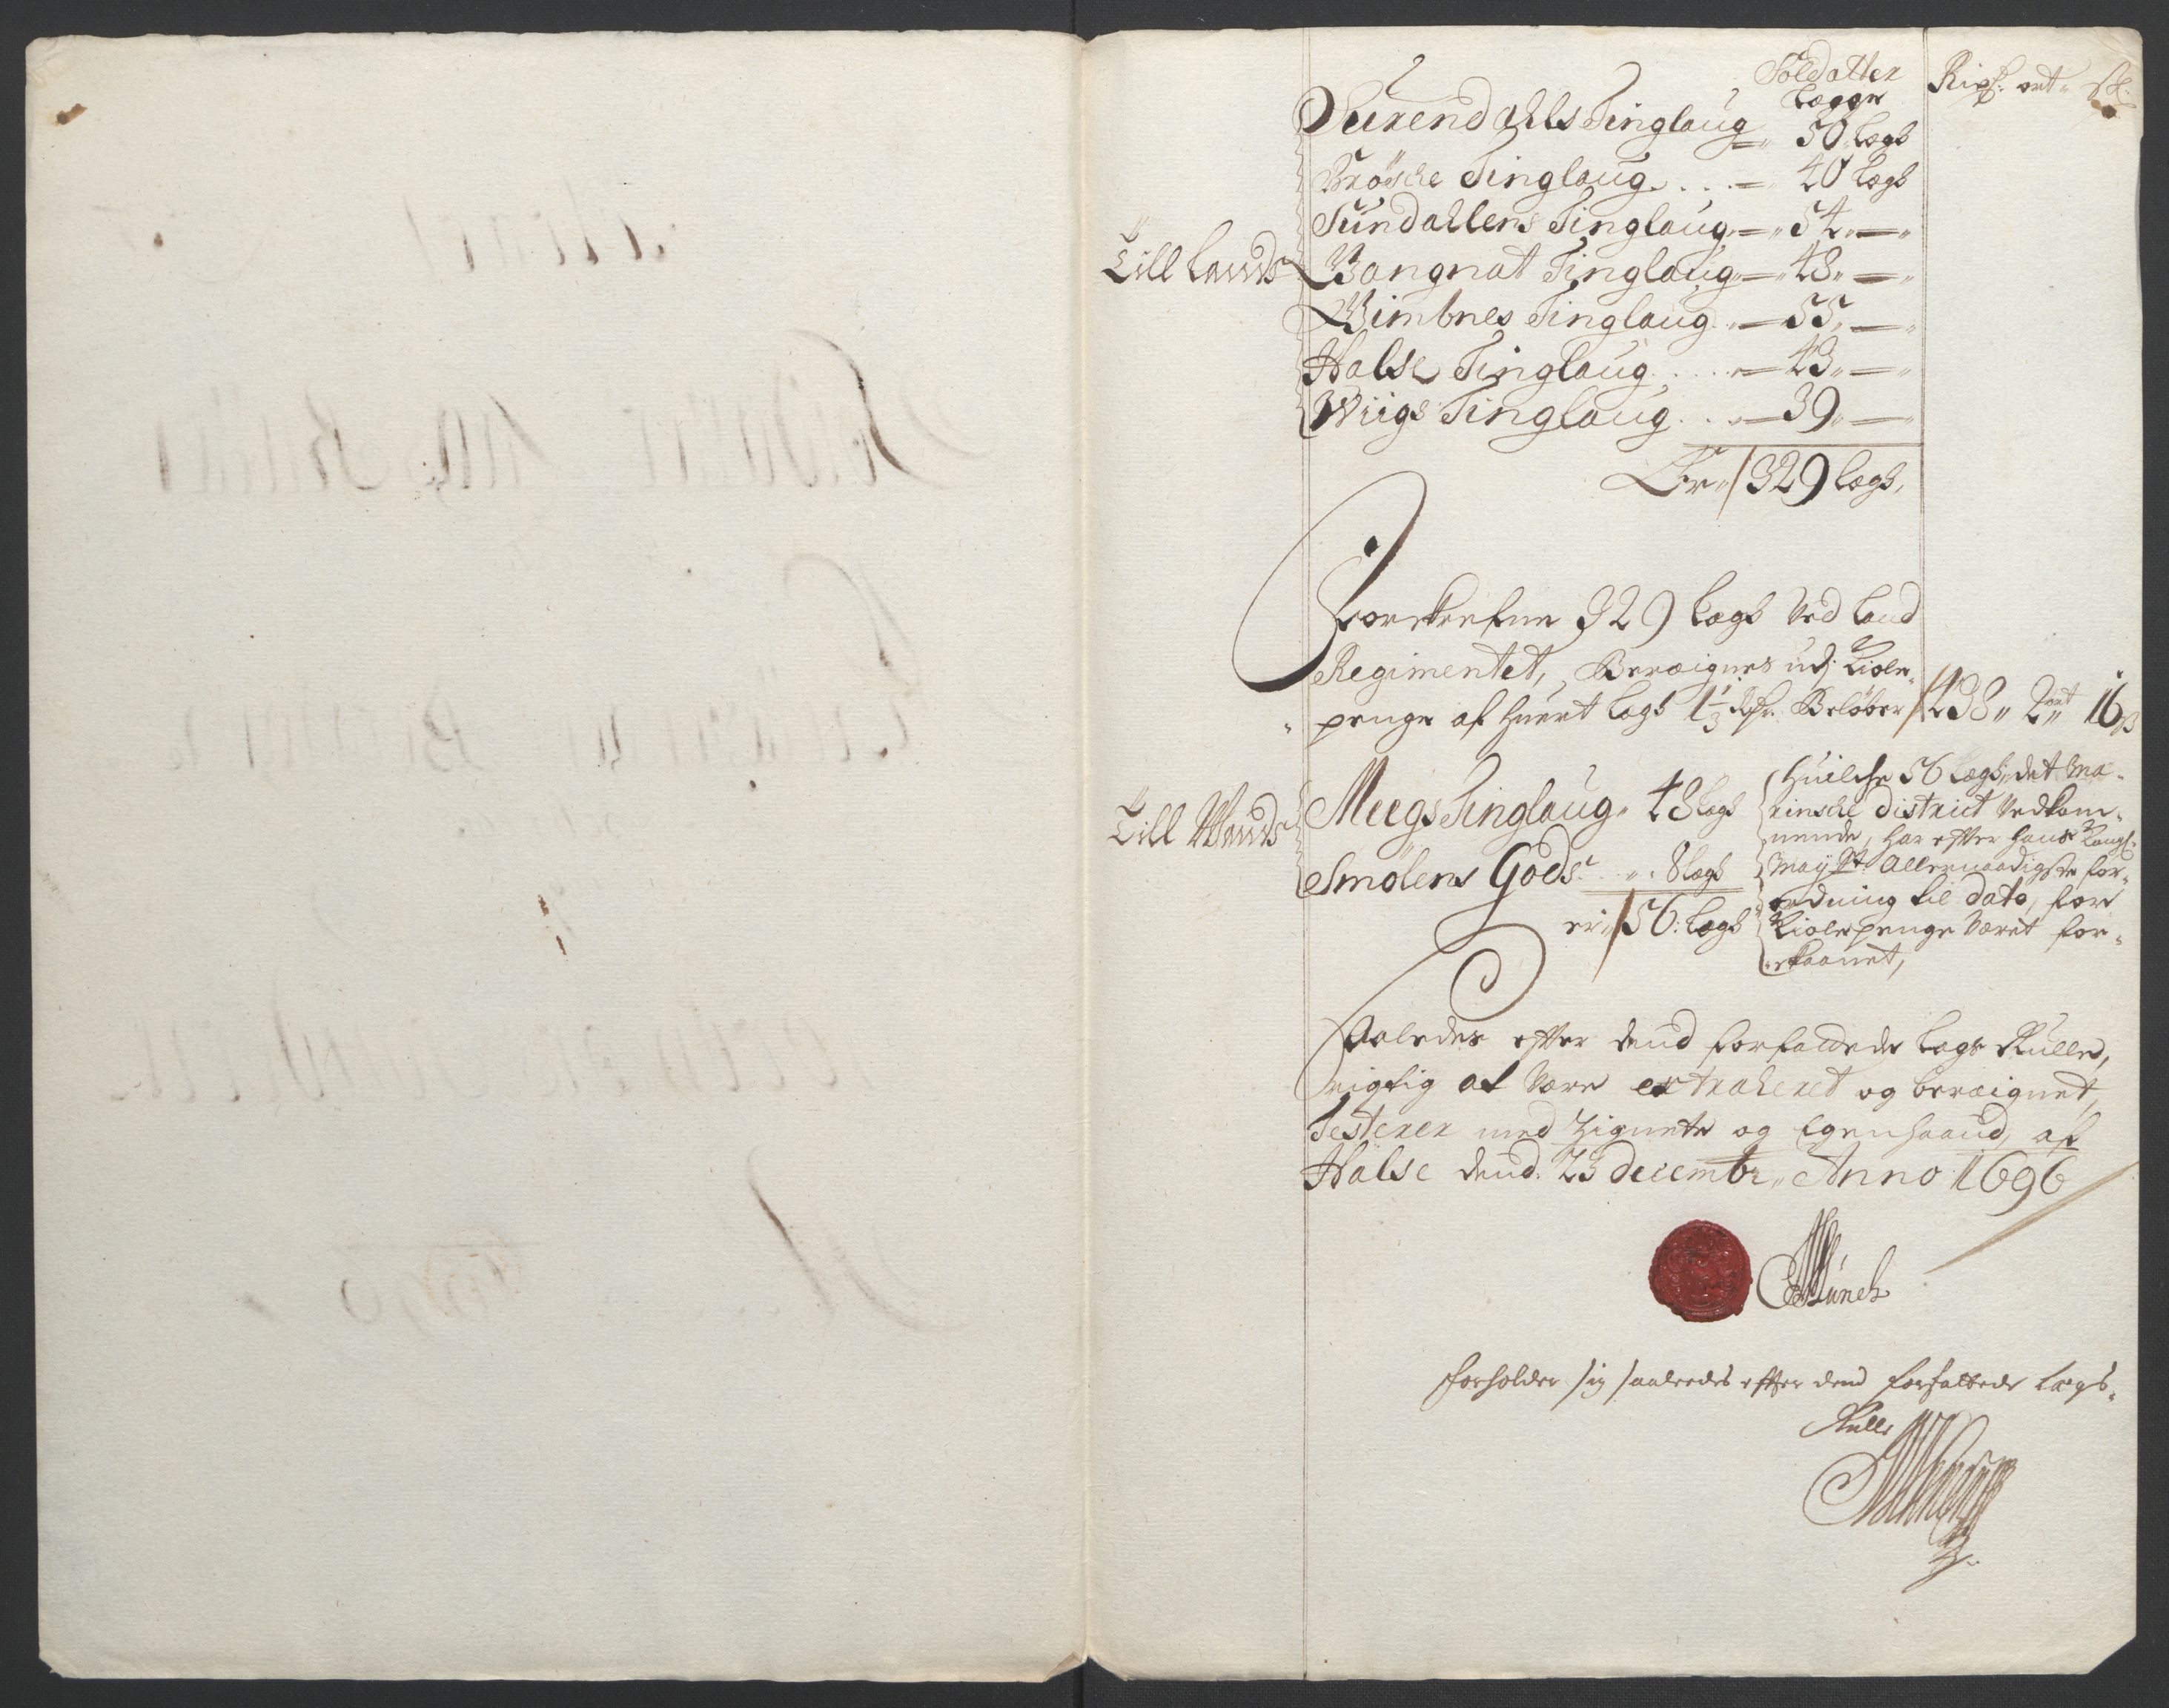 Soldatter
Lægge
Rixdr. ort. sk.
Surendahls Tinglaug 50 Lægs
Brösche Tinglaug 40 Lægs
Sundallens Tinglaug 54
Till Lands
Bangnæt Tinglaug 48
Wimbnes Tinglaug 55
Halse Tinglaug 43
Wiigs Tinglaug 39
Er 329 Lægs,
Forskrefne 329 Lægs ved Land
Regimentet, Beræignes udj Kiole
penge af huert Lægs 1 1/3 Rdr. Beløber 438 2 ort 16 s
Till Wands
Meegs Tinglaug 48 Lægs
Smölens Gods 8 Lægs
er 56: Lægs
Huilche 56 Lægs, det Ma-
rinsche District vedkom-
mende, har efter Hans Kongl:
Mayst: Allernaadigste for-
ordning til dato, for
Kiolepenge været for-
skaanet,
Saaledes efter dend forfattede Lægs Rulle,
rigtig at være extraheret og beræignet,
Testerer med Zignete og Egenhaand, af
Halse dend 23 Decembr. Anno 1696
Münch
forholder sig saaledes efter dend forfattede Lægs-
Rulle